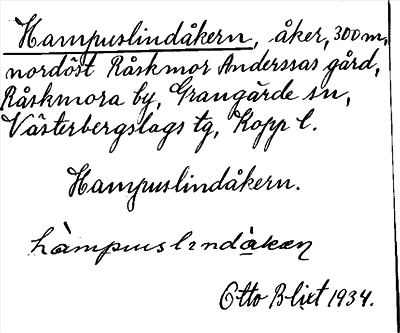 Hampuslindåkern, åker, 300 m.
nordöst Råskmor Anderssas gård,
Råskmora by, Grangärde sn,
Västerbergslags tg, Kopp l.
Hampuslindåkern.
hàmpuslındåkæṇ
Otto Blixt 1934.